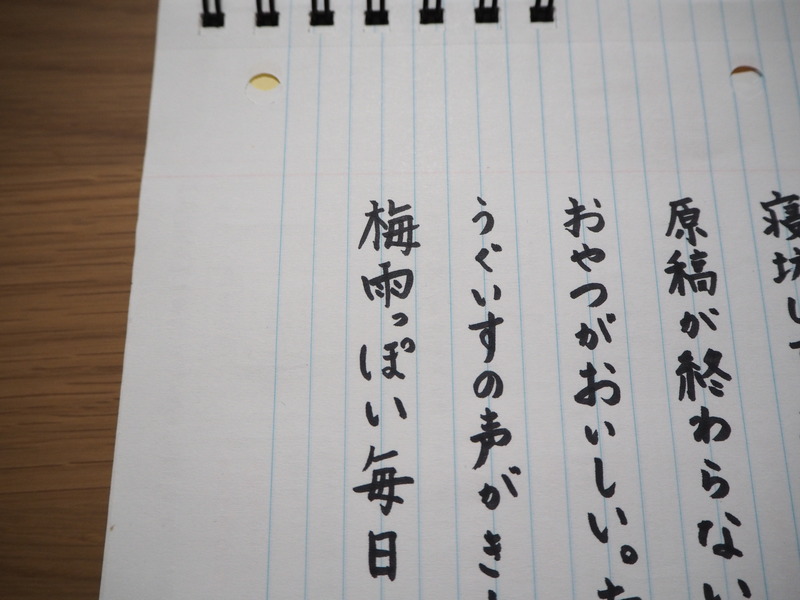 寝坊して
原稿が終わらない
おやつがおいしい。
うぐいすの声がき
梅雨っぽい毎日